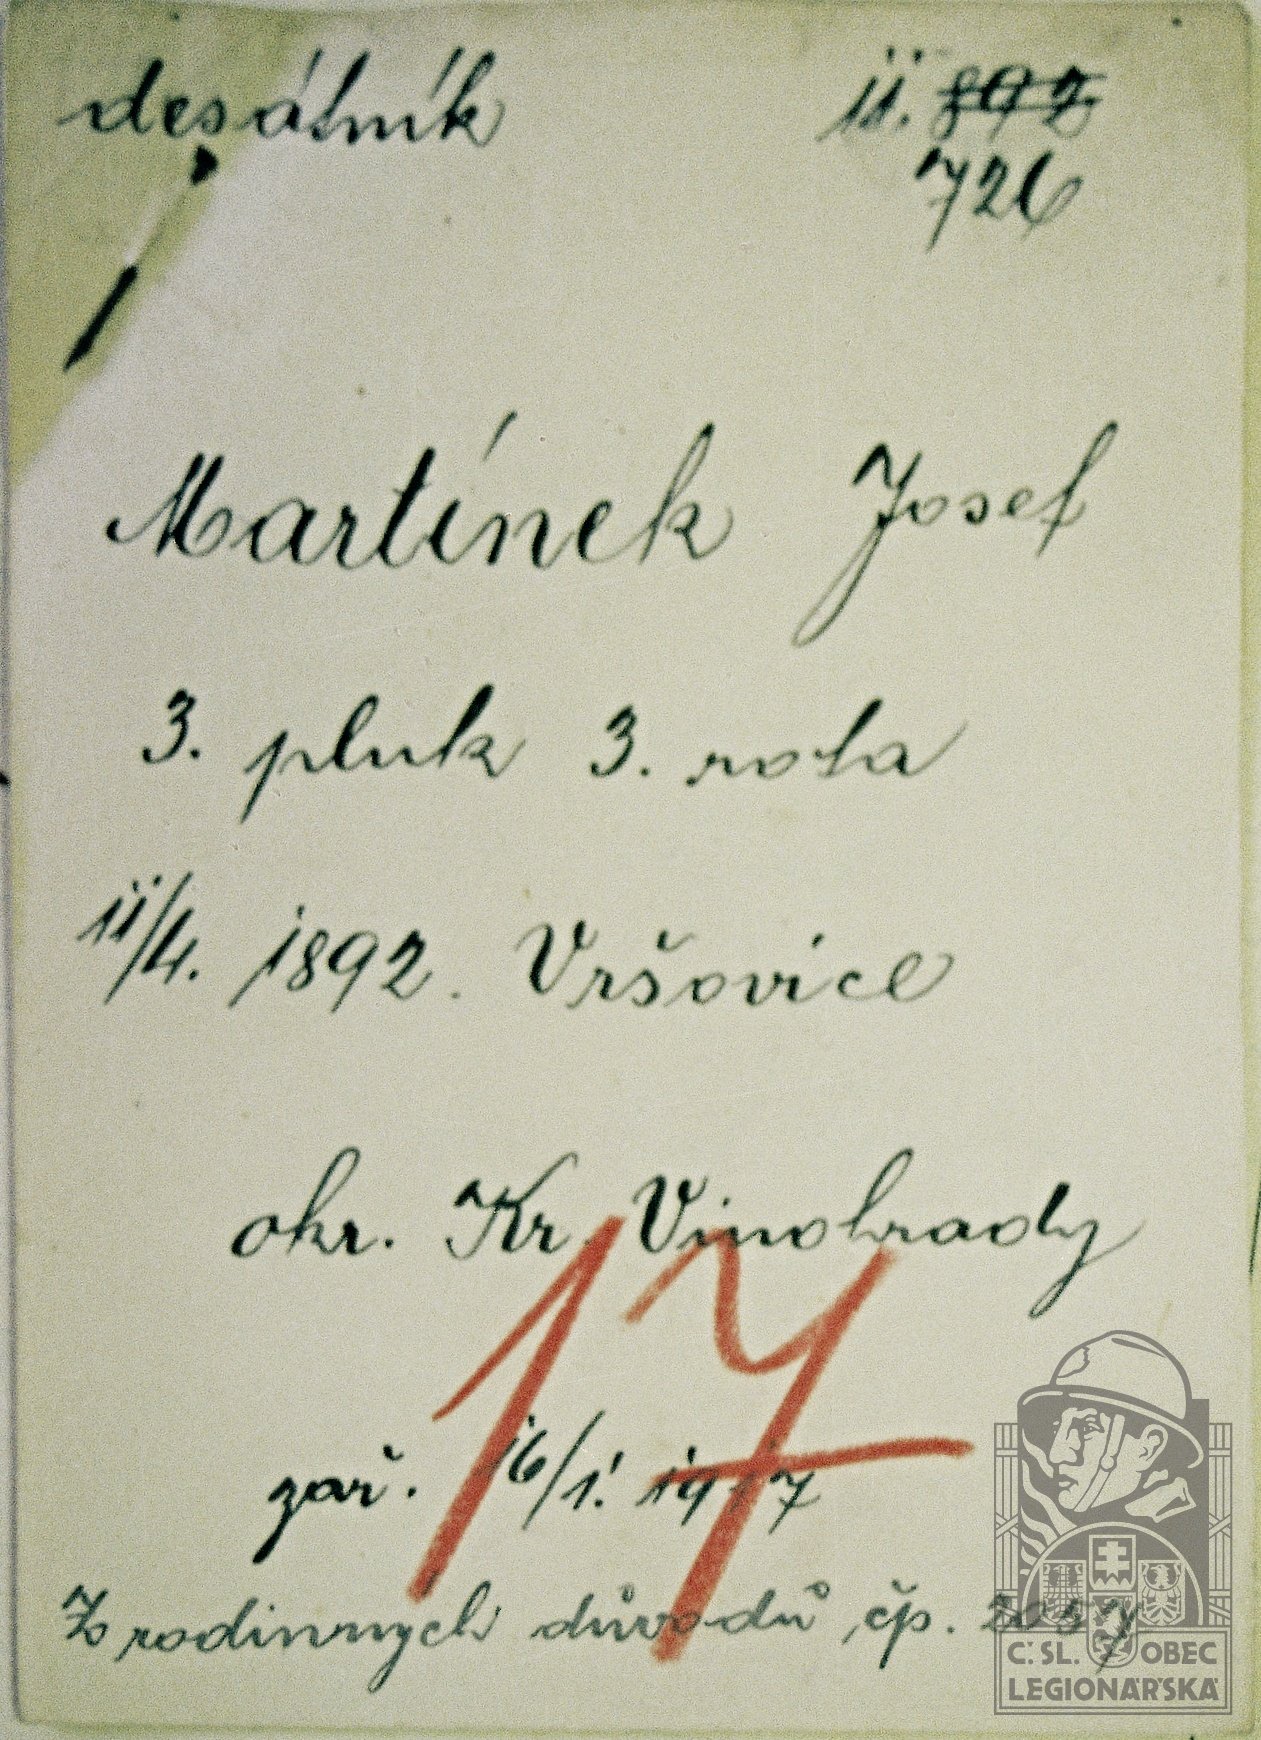 desátník 11. 892
726
Martínek Josef
3. pluk 3. rota
11/4. 1892. Vršovice
okr. Kr. Vinohrady
17
zař. 16/1. 1917
Z rodinných důvodů čp.
Č.SL. OBEC
LEGIONÁŘSKÁ